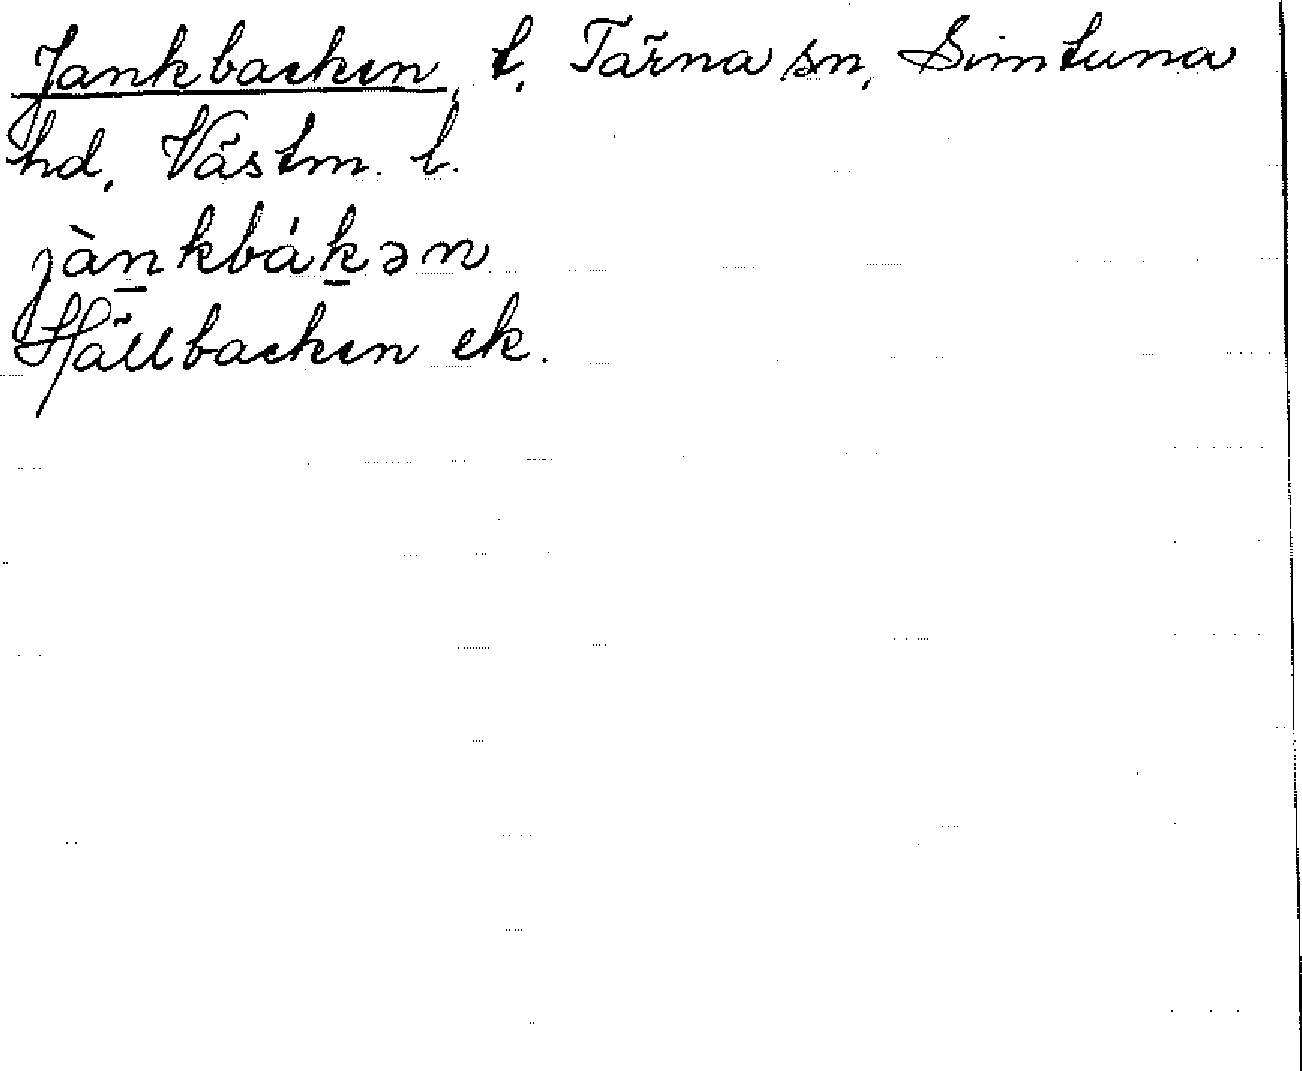 Jankbacken, t, Tärna sn, Simtuna
hd, Västm. l.
jàn̲kbák̲ən
Hällbacken ek.